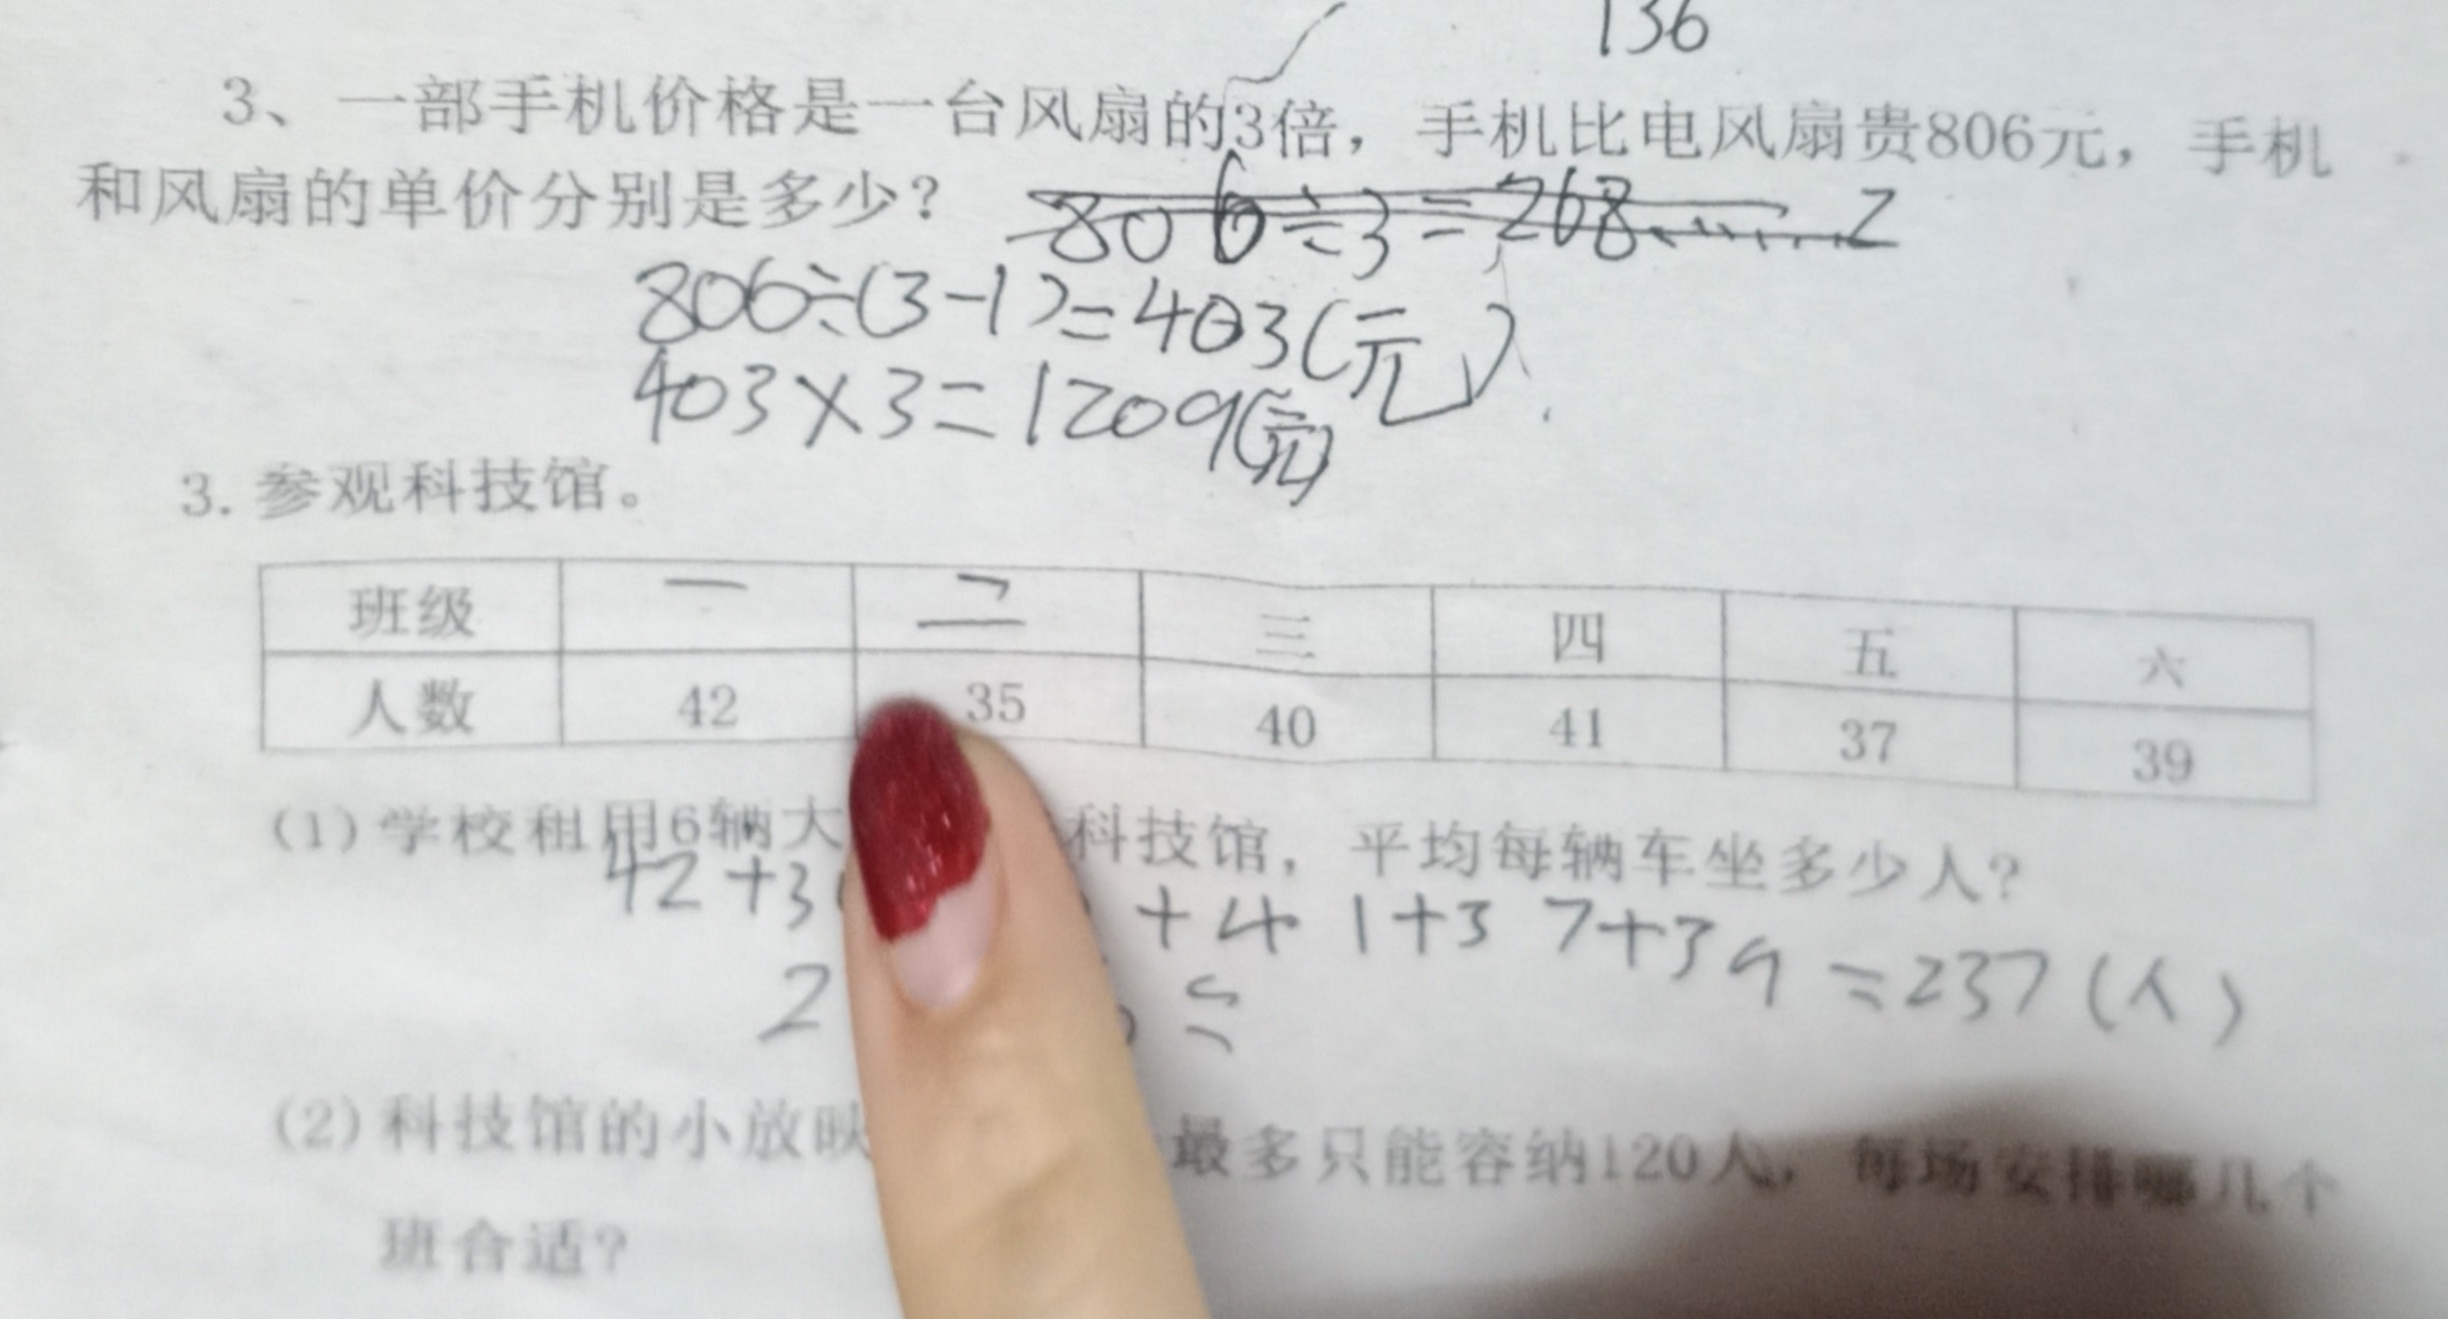 136
3、一部手机价格是一台风扇的3倍，手机比电风扇贵806元，手机
和风扇的单价分别是多少？ 806÷3=268……2
806÷(3-1)=403(元)
403×3=1209(元)
3. 参观科技馆。
班级 一 二 三 四 五 六
人数 42 35 40 41 37 39
(1) 学校租用6辆大 科技馆，平均每辆车坐多少人？
42+3 +41+37+39=237(人)
2
(2) 科技馆的小放映 最多只能容纳120人，每场安排哪几个
班合适？